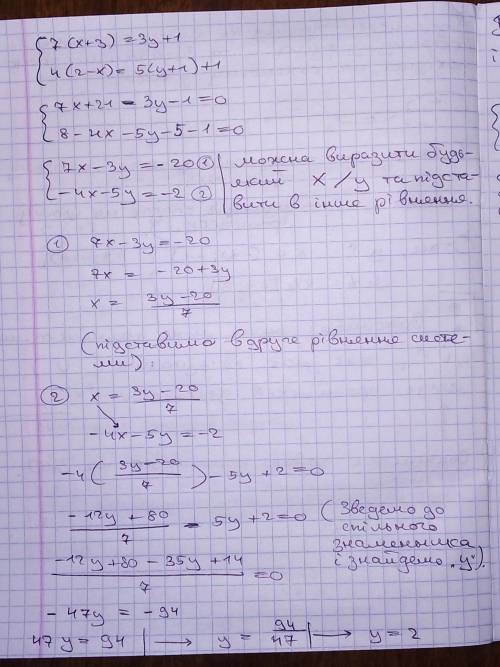 7(x+3)=3y+1
4(2-x)=5(y+1)+1
7x+21-3y-1=0
8-4x-5y-5-1=0
7x-3y=-20 ① | можна виразити будь-
-4x-5y=-2 ② | який x/y та підста-
вити в інше рівняння.
① 7x-3y=-20
7x = -20+3y
x = (3y-20)/7
(підставимо в друге рівняння систе-
ми)
② x = (3y-20)/7
-4x-5y=-2
-4((3y-20)/7)-5y+2=0
(-12y+80)/7 - 5y+2=0 (Зведемо до
спільного
знаменника
(-12y+80-35y+14)/7 =0 і знайдемо „у").
-47y = -94
47y=94 | → y = 94/47 | → y=2